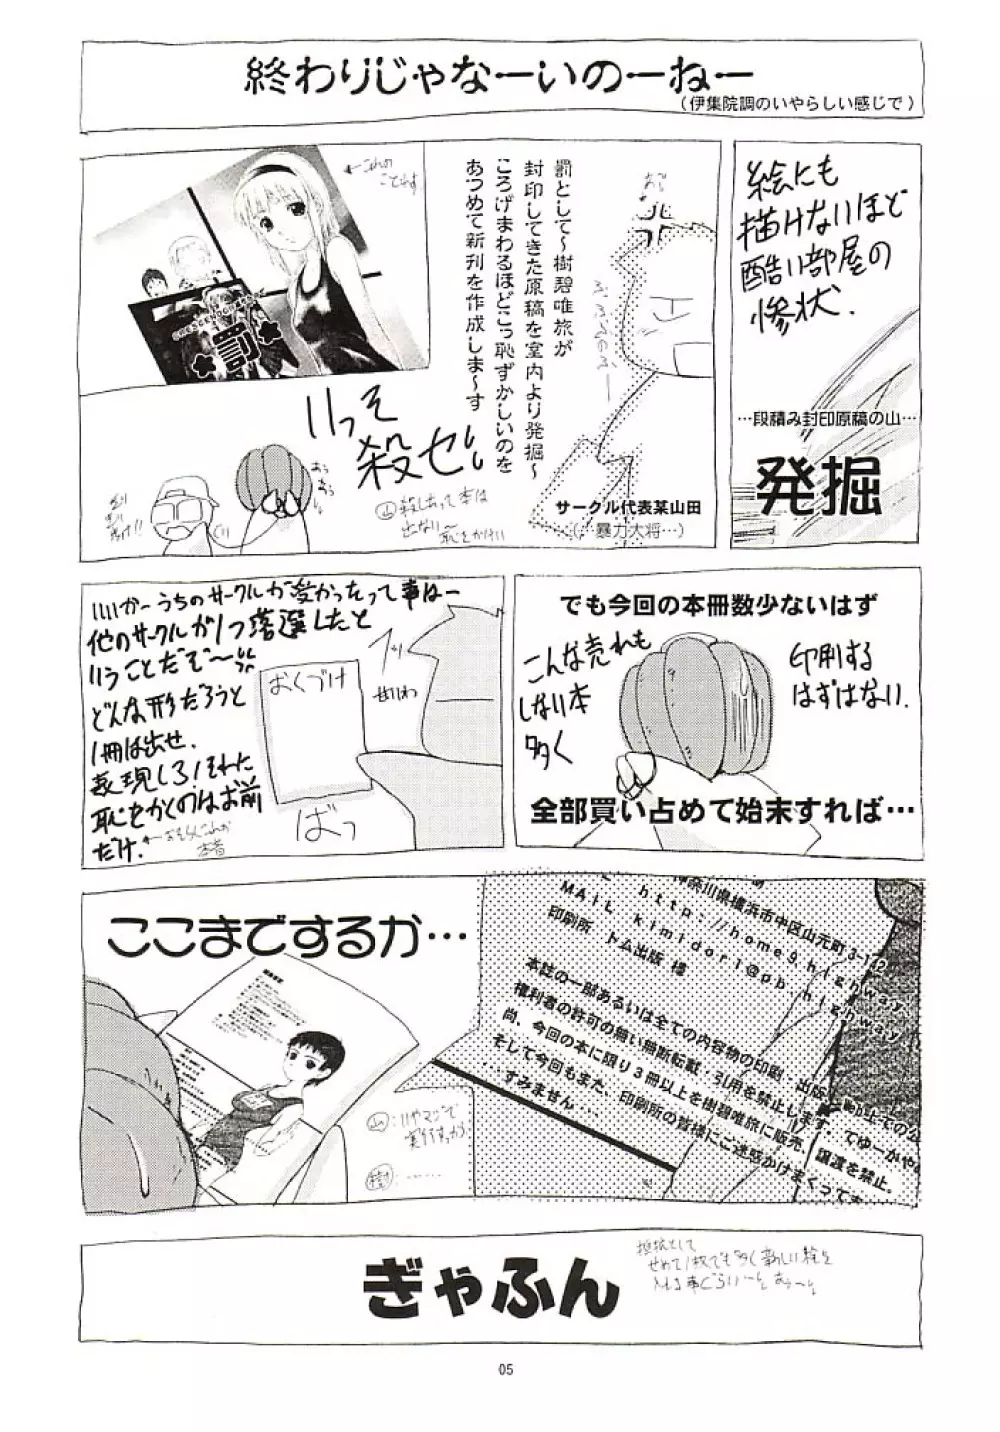 終わりじゃなーいのーねー
(伊集院調のいやらしい感じで)
絵にも
描けないほど
酷い部屋の
惨状.
…段積み封印原稿の山…
発掘
罰として〜樹碧唯旅が
封印してきた原稿を室内より発掘〜
ころげまわるほどこっ恥ずかしいのを
あつめて新刊を作成しま〜す
サークル代表某山田
(…暴力大将…)
←これの
ことです
★罰★
いっそ
殺せ
山 殺しあって本は
出ない〜
恥をかけい
でも今回の本冊数少ないはず
こんな売れも
しない本
多く
印刷する
はずはない.
全部買い占めて始末すれば…
いいかーうちのサークルが受かったって事はー
他のサークルが1つ落選したと
いうことだぞ〜
どんな形だろうと
1冊は出せ.
表現しろ!それに
恥をかくのはお前
だけ.
←おそらくこれが
本音
おくづけ
ばっ
ここまでするか…
神奈川県横浜市中区山元町3-142
http://home9.highway
MAIL kimidori@pb.highway
印刷所 トム出版 様
本誌の一部あるいは全ての内容物の印刷・出版
権利者の許可の無い無断転載・引用を禁止します。てゆーかや
尚、今回の本に限り3冊以上を樹碧唯旅に販売、譲渡を禁止。
そして今回もまた、印刷所の皆様にご迷惑かけまくってす
すみません…
山:いやマジで
実行すっから
樹:……
ぎゃふん
抵抗として
せめて1枚でも多く新しい絵を
入れる事ぐらい〜
05